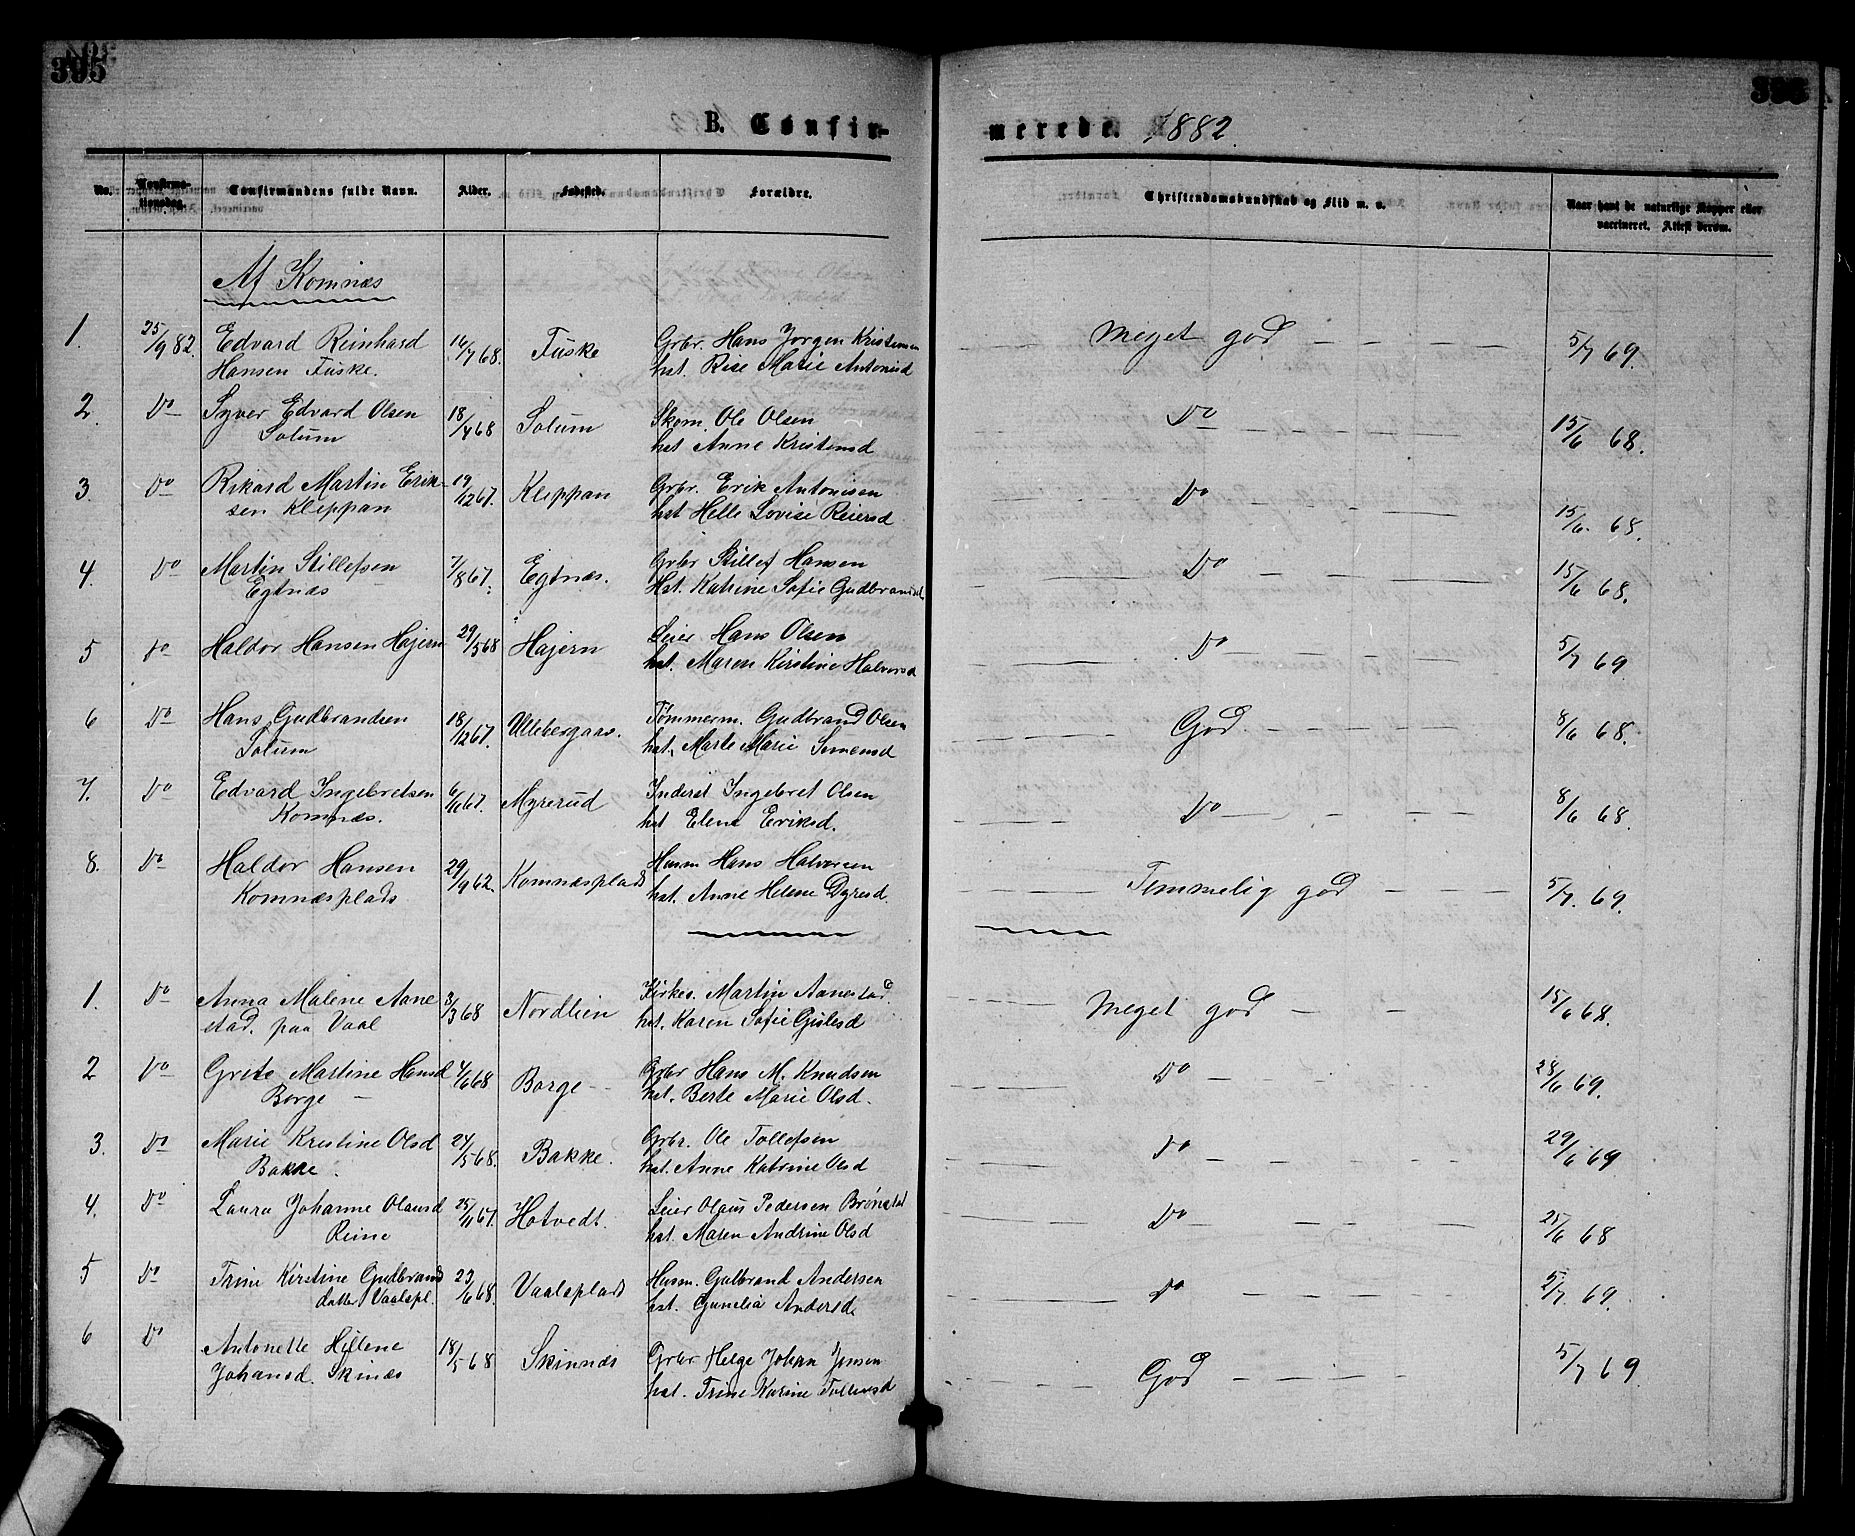 395
395
B. Confir-
merede. 1882.
No.
Confirma-
tionsdag.
Confirmandens fulde Navn.
Alder.
Fødested.
Forældre.
Christendomskundskab og Flid m. v.
Naar havt de naturlige Kopper eller
vaccineret. Attest derom.
Af Komnæs
1. 25/9 82. Edvard Reinhard 16/7 68. Fuske Grbr. Hans Jørgen Kristensen Meget god 5/7 69.
Hansen Fuske. hst. Rise Marie Antonisd
2. Do Syver Edvard Olsen 18/4 68 Solum Skom. Ole Olsen Do 15/6 68.
Solum hst Anne Kristensd
3. Do Rikard Martin Erik- 19/12 67. Kleppan Grbr. Erik Antonisen Do 15/6. 68.
sen Kleppan hst Helle Lovise Reiersd
4. Do Martin Stillefsen 7/8 67. Egtnæs. Grbr Stillef Hansen Do 15/6 68.
Egtnæs Hst. Katrine Sofie Gudbrandsd
5 Do Haldor Hansen Hajern 29/5 68 Hajern Leier Hans Olsen Do 5/7 69
hst. Maren Kirstine Halvorsd
6 Do Hans Gudbrandsen 18/12 67. Ullebergaas. Tømmerm. Gudbrand Olsen God 8/6 68.
Solum hst. Marte Marie Simensd
7. Do Edvard Ingebretsen 6/11 67. Myrerud Inderst Ingebret Olsen Do 8/6 68.
Komnæs. hst Elene Eriksd.
8. Do Haldor Hansen 29/9 62. Komnæsplads Husm Hans Halvorsen Temmelig god 5/7. 69.
Komnæsplads hst. Anne Helene Dyresd.
1. Do Anna Malene Aane 3/3 68 Nordlien Kirkes. Martin Aanestad. Meget god 15/6 68.
stad. paa Vaal hst. Karen Sofie Gislesd
2 Do Grete Martine Hansd 4/6 68 Borge Grbr Hans M. Knudsen Do 28/6 69.
Borge hst. Berte Marie Olsd.
3. Do Marie Kristine Olsd 24/5 68. Bakke. Grbr. Ole Tollefsen Do 29/6 69
Bakke. hst. Anne Katrine Olsd
4. Do Laura Johanne Olausd 25/11 67. Hotvedt. Leier Olaus Pedersen Brønstad Do 25/6 68
Reine hst. Maren Andrine Olsd
5 Do Trine Kirstine Gudbrands 23/6 68. Vaalsplads Husm. Gulbrand Andersen Do 5/7. 69.
datter Vaalspl. hst. Gunelia Andersd.
6 Do Antonette Hellene 18/5 68 Skinnæs Grbr Helge Johan Jensen God 5/7 69
Johansd. Skinæs hst. Trine Karine Tollevsd